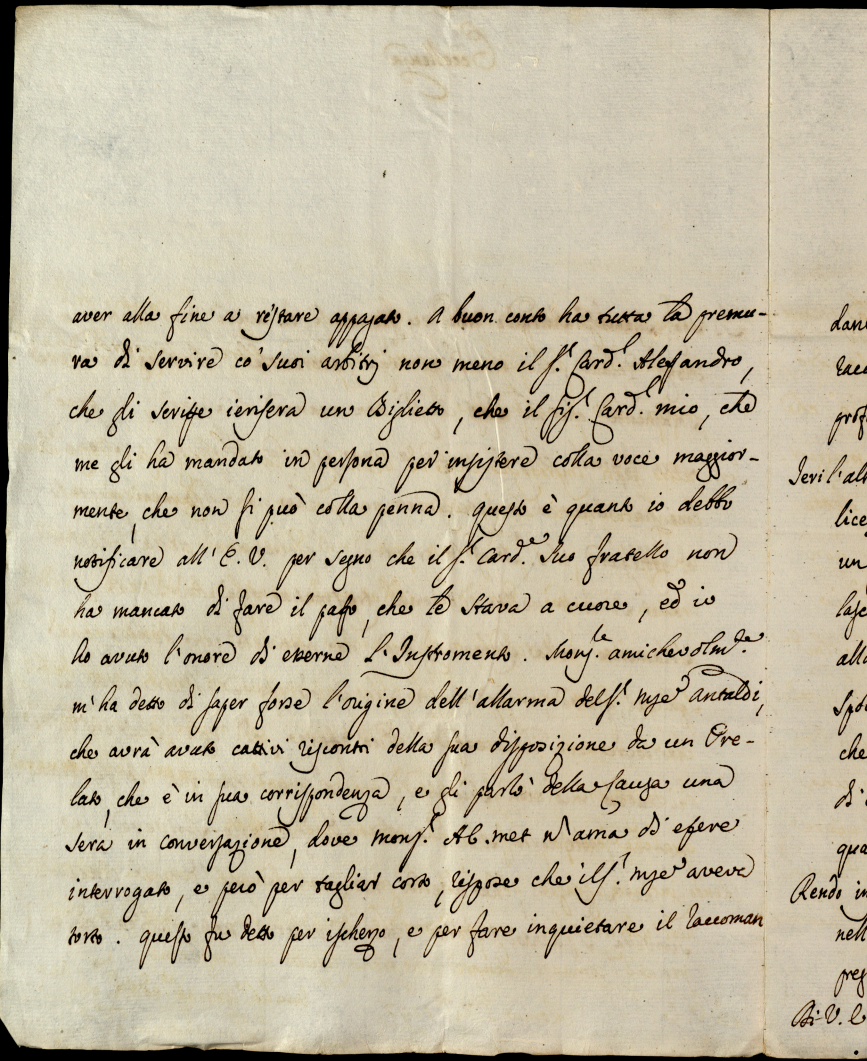 aver alla fine a restare appagato. A buon conto ha tutta la premu-
ra di servire co' suoi arbitrj non meno il S.r Card.l Alessandro,
che gli scrisse jerisera un Biglietto, che il Sig.r Card.l mio, che
me gli ha mandato in persona per insistere colla voce maggior-
mente, che non si può colla penna. Questo è quanto io debbo
notificare all'E. V. per segno che il S.r Card.e Suo fratello non
ha mancato di fare il passo, che le stava a cuore, ed io
ho avuto l'onore di esserne l'Instromento. Mons.re amichevolm.te
m'ha detto di saper forse l'origine dell'allarma del S.r Mse Antaldi,
che avrà avuto cattivi riscontri della sua disposizione da un Pre-
lato, che è in sua corrispondenza, e gli parlò della Causa una
sera in conversazione, dove Mons.r non ama di essere
interrogato, e però per tagliar corto, rispose che il S.r Mse aveva
torto. Questo fu detto per ischerzo, e per fare inquietare il raccoman
dan
racc
prof
Jeri l'alt
lice
un
lasc
alla
Spo
che
di
qua
Rendo in
nell
preg
Di V. E